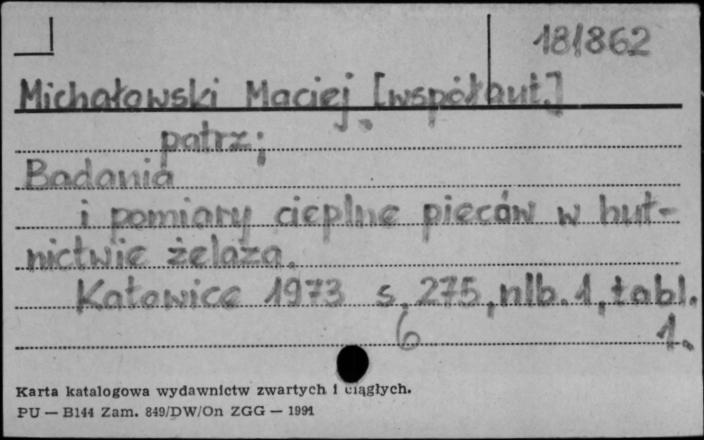 181862
Michałowski Maciej [współaut.]
patrz:
Badania
i pomiary cieplne pieców w hut-
nictwie żelaza.
Katowice 1973 s. 275, nlb. 1, tabl.
6 1.
Karta katalogowa wydawnictw zwartych i ciągłych.
PU — B144 Zam. 849/DW/On ZGG — 1991